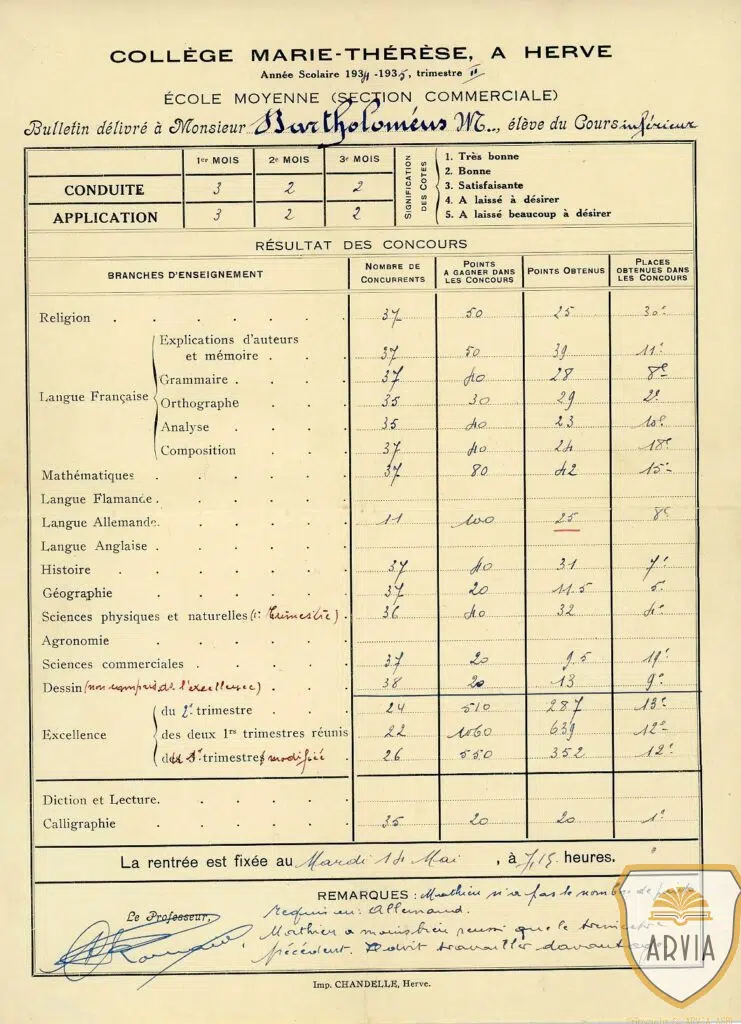 COLLÈGE MARIE-THÉRÈSE, A HERVE
Année Scolaire 1934-1935, trimestre II
ÉCOLE MOYENNE (SECTION COMMERCIALE)
Bulletin délivré à Monsieur Bartholoméus M.., élève du Cours inférieur
1er MOIS 2e MOIS 3e MOIS
CONDUITE 3 2 2
APPLICATION 3 2 2
SIGNIFICATION DES COTES
1. Très bonne
2. Bonne
3. Satisfaisante
4. A laissé à désirer
5. A laissé beaucoup à désirer
RÉSULTAT DES CONCOURS
BRANCHES D'ENSEIGNEMENT NOMBRE DE CONCURRENTS POINTS A GAGNER DANS LES CONCOURS POINTS OBTENUS PLACES OBTENUES DANS LES CONCOURS
Religion 37 50 25 30e
Langue Française
Explications d'auteurs et mémoire 37 50 39 11e
Grammaire 37 40 28 8e
Orthographe 35 30 29 2e
Analyse 35 40 23 10e
Composition 37 40 24 18e
Mathématiques 37 80 42 15e
Langue Flamande
Langue Allemande 11 100 25 8e
Langue Anglaise
Histoire 37 40 31 7e
Géographie 37 20 11.5 5e
Sciences physiques et naturelles (1r trimestre) 36 40 32 4e
Agronomie
Sciences commerciales 37 20 9.5 19e
Dessin (non compris ds l'excellence) 38 20 13 9e
Excellence
du 2e trimestre 24 510 287 13e
des deux 1rs trimestres réunis 22 1060 639 12e
du 1r trimestre modifié 26 550 352 12e
Diction et Lecture
Calligraphie 35 20 20 1e
La rentrée est fixée au Mardi 14 Mai, à 7,15 heures.
REMARQUES : Mathieu n'a pas le nombre de points
requis en : Allemand.
Le Professeur,
Mathieu a moins bien réussi que le trimestre
précédent. Doit travailler davantage
Imp. CHANDELLE, Herve.
ARVIA